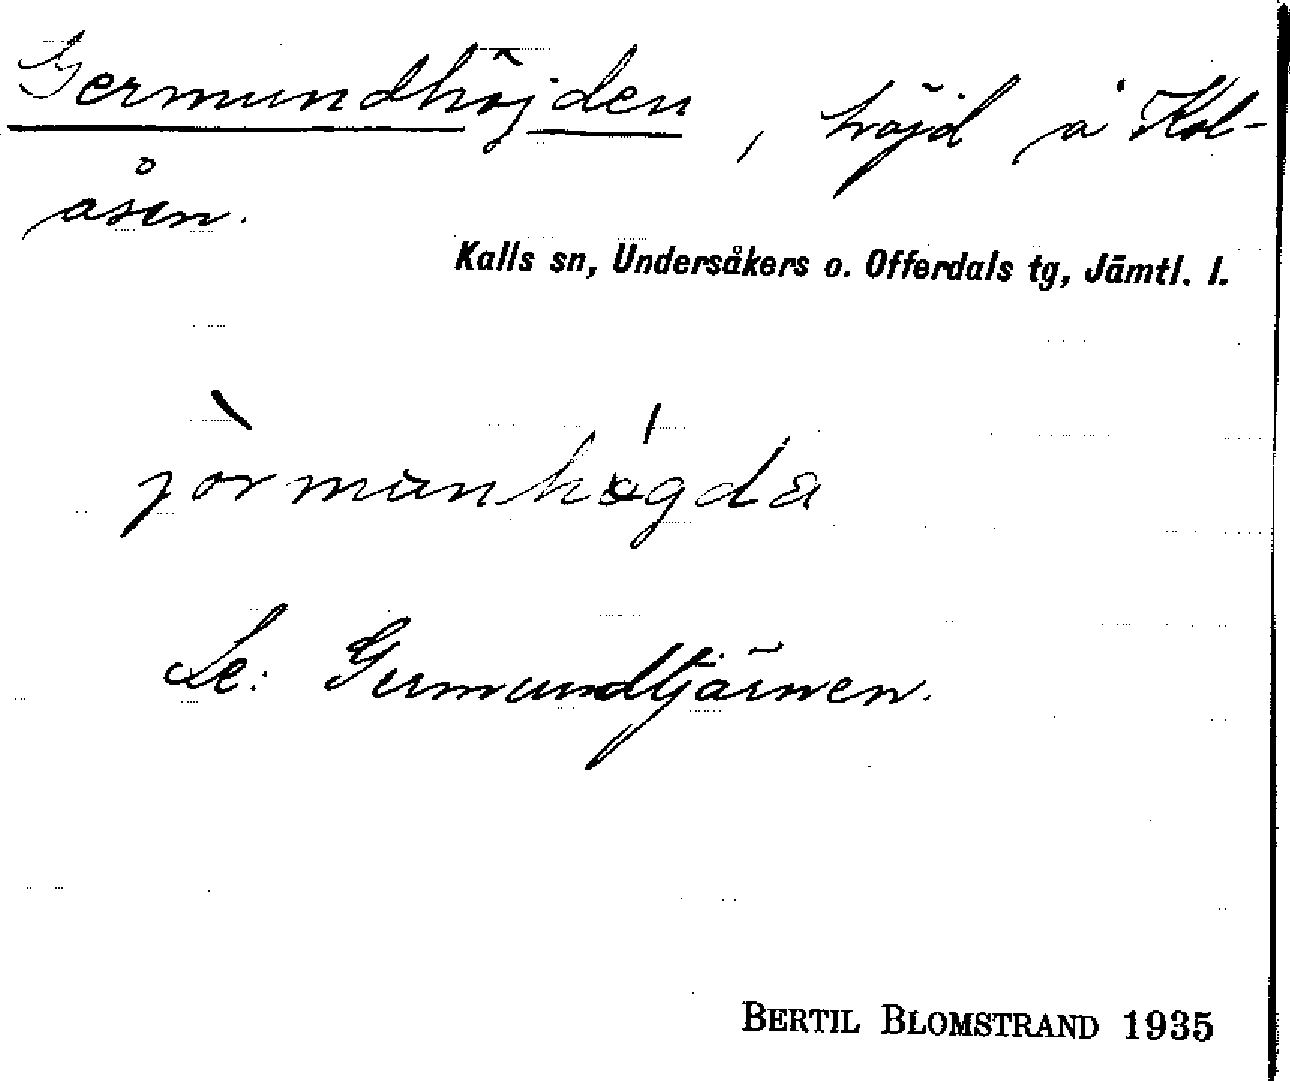 Germundhöjden, höjd å Kol-
åsen.
Kalls sn, Undersåkers o. Offerdals tg, Jämtl. l.
jörmunhøgda
Se: Germundtjärnen.
BERTIL BLOMSTRAND 1935